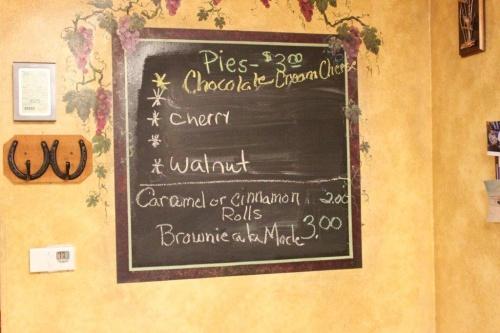 Pies - $3.00
* Chocolate - Cream Cheese
*
* Cherry
*
* Walnut
Caramel or Cinnamon 2.00
Rolls
Brownie a la Mode 3.00